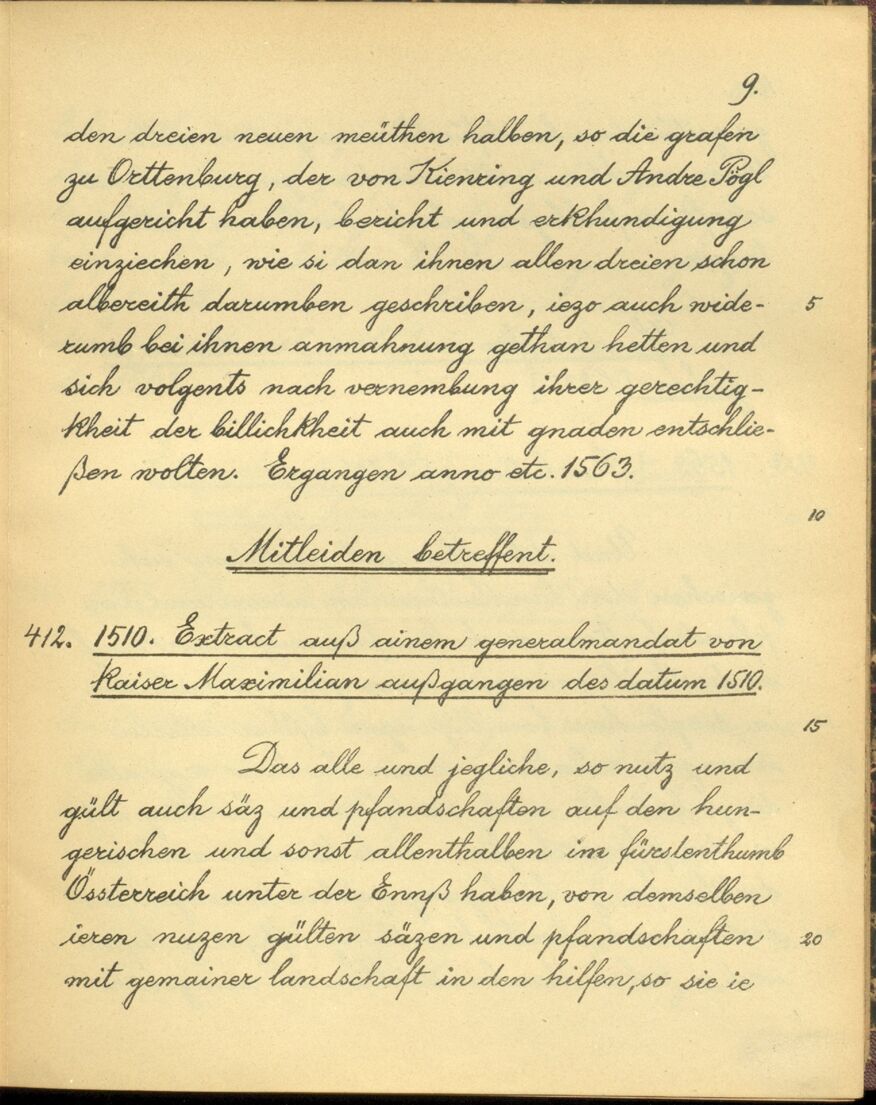 9.
den dreien neuen meüthen halben, so die grafen
zu Orttenburg, der von Kienring und Andre Pögl
aufgericht haben, bericht und erkhundigung
einziechen, wie si dan ihnen allen dreien schon
albereith darumben geschriben, iezo auch wide- 5
rumb bei ihnen anmahnung gethan hetten und
sich volgents nach vernembung ihrer gerechtig-
kheit der billichkheit auch mit gnaden entschlie-
ßen wolten. Ergangen anno etc. 1563.
10
Mitleiden betreffent.
412. 1510. Extract auß ainem generalmandat von
kaiser Maximilian außgangen des datum 1510.
15
Das alle und jegliche, so nutz und
gült auch säz und pfandschaften auf den hun-
gerischen und sonst allenthalben im fürstenthumb
Össterreich unter der Ennß haben, von demselben
ieren nuzen gülten säzen und pfandschaften 20
mit gemainer landschaft in den hilfen, so sie ie